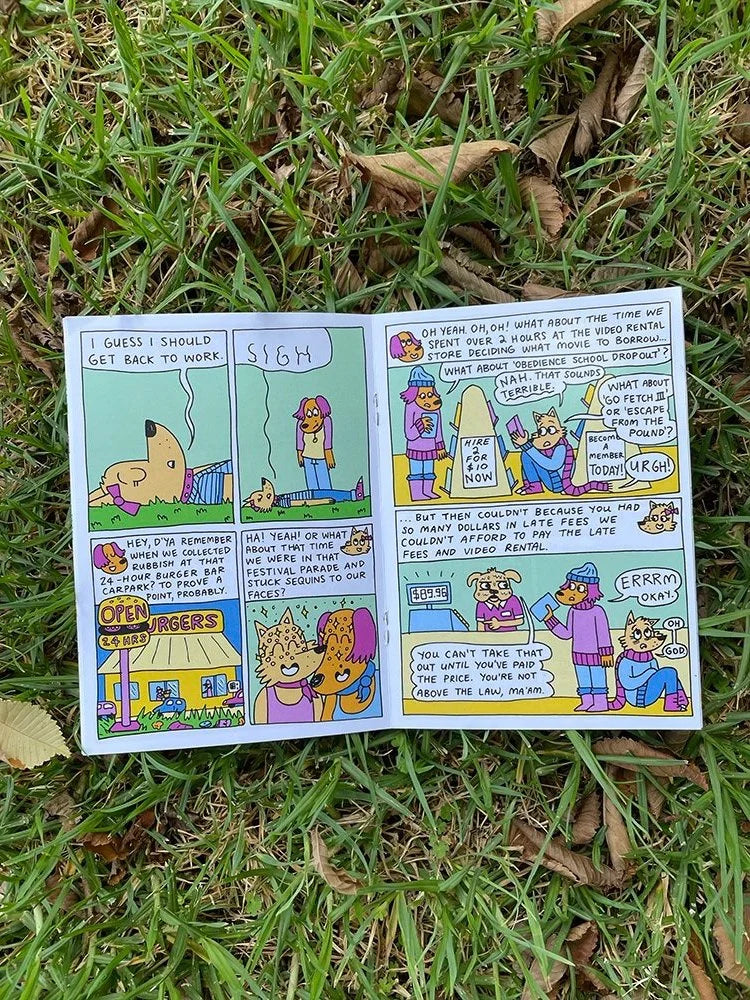 I GUESS I SHOULD
GET BACK TO WORK.
SIGH
HEY, D'YA REMEMBER
WHEN WE COLLECTED
RUBBISH AT THAT
24-HOUR BURGER BAR
CARPARK? TO PROVE A
POINT, PROBABLY.
OPEN
24 HRS
URGERS
HA! YEAH! OR WHAT
ABOUT THAT TIME
WE WERE IN THAT
FESTIVAL PARADE AND
STUCK SEQUINS TO OUR
FACES?
OH YEAH. OH, OH! WHAT ABOUT THE TIME WE
SPENT OVER 2 HOURS AT THE VIDEO RENTAL
STORE DECIDING WHAT MOVIE TO BORROW...
WHAT ABOUT 'OBEDIENCE SCHOOL DROPOUT'?
NAH. THAT SOUNDS
TERRIBLE.
WHAT ABOUT
'GO FETCH III'
OR 'ESCAPE
FROM THE
POUND'?
HIRE
2
FOR
$10
NOW
BECOME
A
MEMBER
TODAY!
URGH!
... BUT THEN COULDN'T BECAUSE YOU HAD
SO MANY DOLLARS IN LATE FEES WE
COULDN'T AFFORD TO PAY THE LATE
FEES AND VIDEO RENTAL.
$89.96
ERRRM
OKAY.
OH
GOD
YOU CAN'T TAKE THAT
OUT UNTIL YOU'VE PAID
THE PRICE. YOU'RE NOT
ABOVE THE LAW, MA'AM.